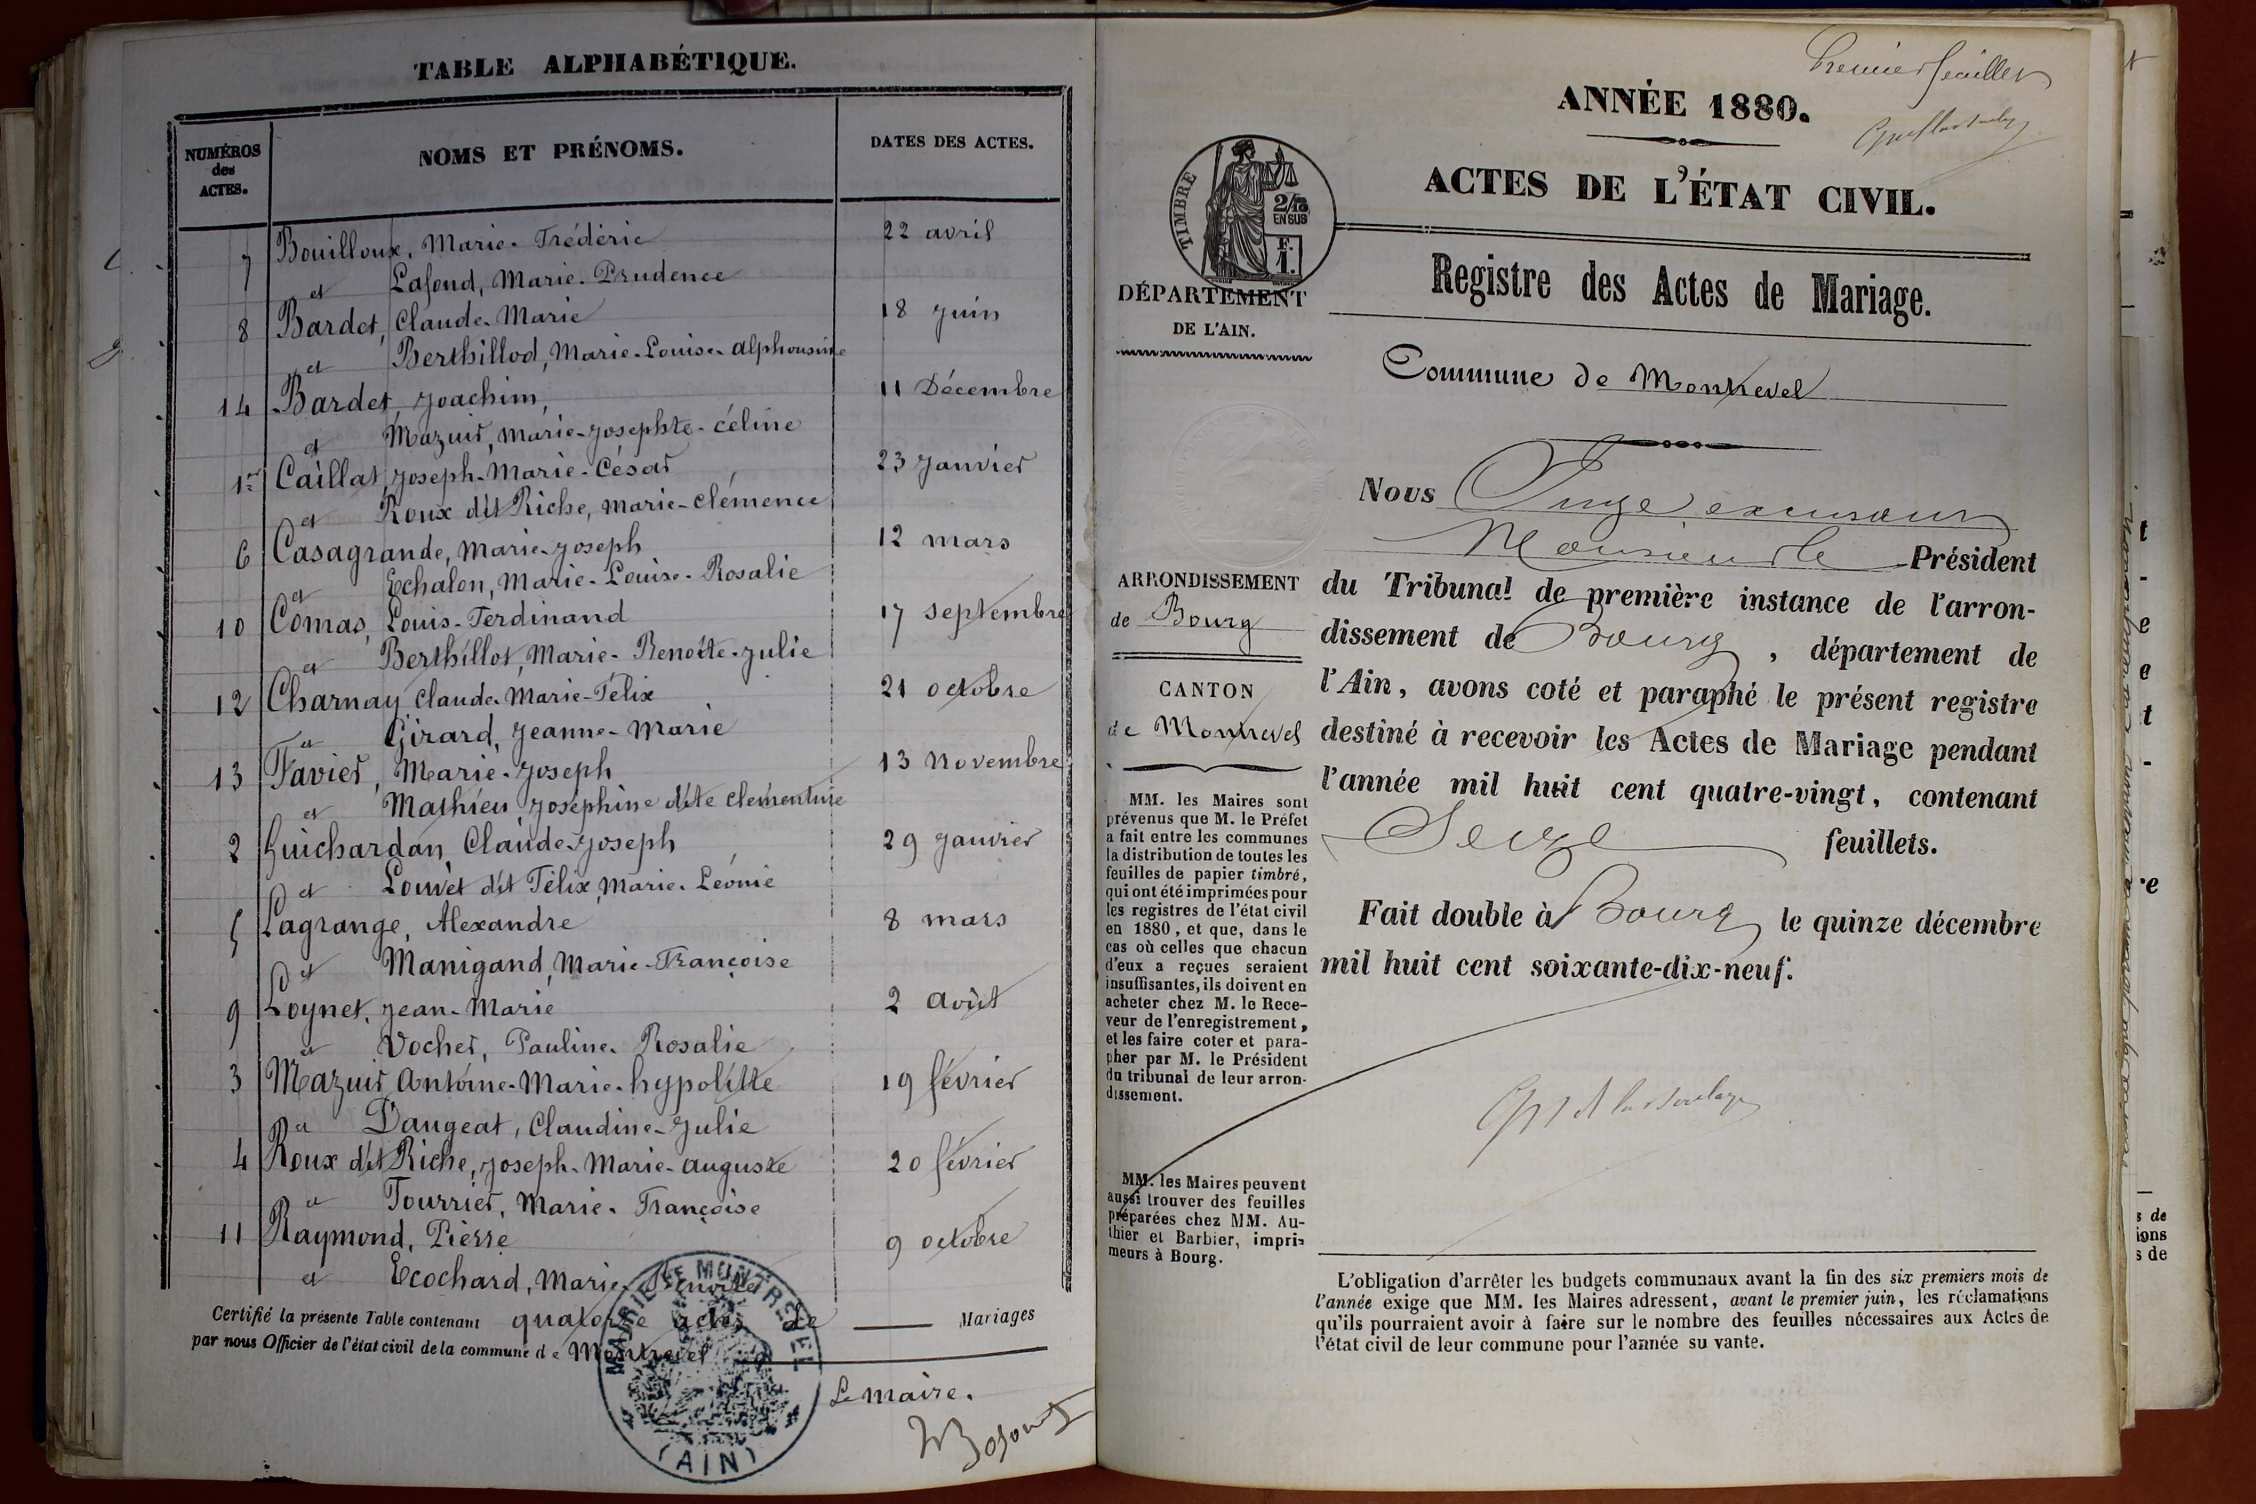 TABLE ALPHABÉTIQUE.
NUMÉROS des ACTES.
NOMS ET PRÉNOMS.
DATES DES ACTES.
7 Bouilloux, Marie-Frédéric 22 avril
et Lafond, Marie-Prudence
8 Bardet, Claude-Marie 18 juin
et Berthillod, Marie-Louise-alphonsine
14 Bardet, Joachim, 11 Décembre
et Mazuir, Marie-Josephte-céline
1er Caillat, Joseph-Marie-César 23 Janvier
et Roux dit Riche, Marie-Clémence
6 Casagrande, Marie-Joseph 12 mars
et Echalon, Marie-Louise-Rosalie
10 Comas, Louis-Ferdinand 17 septembre
et Berthillot, Marie-Benoîte-Julie
12 Charnay Claude-Marie-Félix 21 octobre
et Girard, Jeanne-Marie
13 Favier, Marie-Joseph 13 Novembre
et Mathieu Joséphine dite Clémentine
2 Guichardan, Claude-Joseph 29 Janvier
et Louvet dit Félix, Marie-Léonie
5 Lagrange, Alexandre 8 mars
et Manigand, Marie-Françoise
9 Loynet, Jean-Marie 2 août
et Vocher, Pauline-Rosalie
3 Mazuir, Antoine-Marie-hypolitte 19 février
et Daugeat, Claudine-Julie
4 Roux dit Riche, Joseph-Marie-auguste 20 février
et Tourrier, Marie-Françoise
11 Raymond, Pierre 9 octobre
et Ecochard, Marie-
Certifié la présente Table contenant quatorze actes de Mariages
par nous Officier de l'état civil de la commune de Montrevel
MAIRIE DE MONTREVEL
(AIN)
Le maire.
Premier feuillet
ANNÉE 1880.
ACTES DE L'ÉTAT CIVIL.
TIMBRE
2/10
EN SUS
F.
1.
DÉPARTEMENT
DE L'AIN.
Registre des Actes de Mariage.
Commune de Montrevel
Nous Juge
Monsieur le Président
du Tribunal de première instance de l'arron-
dissement de Bourg, département de
l'Ain, avons coté et paraphé le présent registre
destiné à recevoir les Actes de Mariage pendant
l'année mil huit cent quatre-vingt, contenant
Seize feuillets.
Fait double à Bourg le quinze décembre
mil huit cent soixante-dix-neuf.
ARRONDISSEMENT
de Bourg
CANTON
de Montrevel
MM. les Maires sont
prévenus que M. le Préfet
a fait entre les communes
la distribution de toutes les
feuilles de papier timbré,
qui ont été imprimées pour
les registres de l'état civil
en 1880, et que, dans le
cas où celles que chacun
d'eux a reçues seraient
insuffisantes, ils doivent en
acheter chez M. le Rece-
veur de l'enregistrement,
et les faire coter et para-
pher par M. le Président
du tribunal de leur arron-
dissement.
MM. les Maires peuvent
aussi trouver des feuilles
préparées chez MM. Au-
thier et Barbier, impri-
meurs à Bourg.
L'obligation d'arrêter les budgets communaux avant la fin des six premiers mois de
l'année exige que MM. les Maires adressent, avant le premier juin, les réclamations
qu'ils pourraient avoir à faire sur le nombre des feuilles nécessaires aux Actes de
l'état civil de leur commune pour l'année su vante.